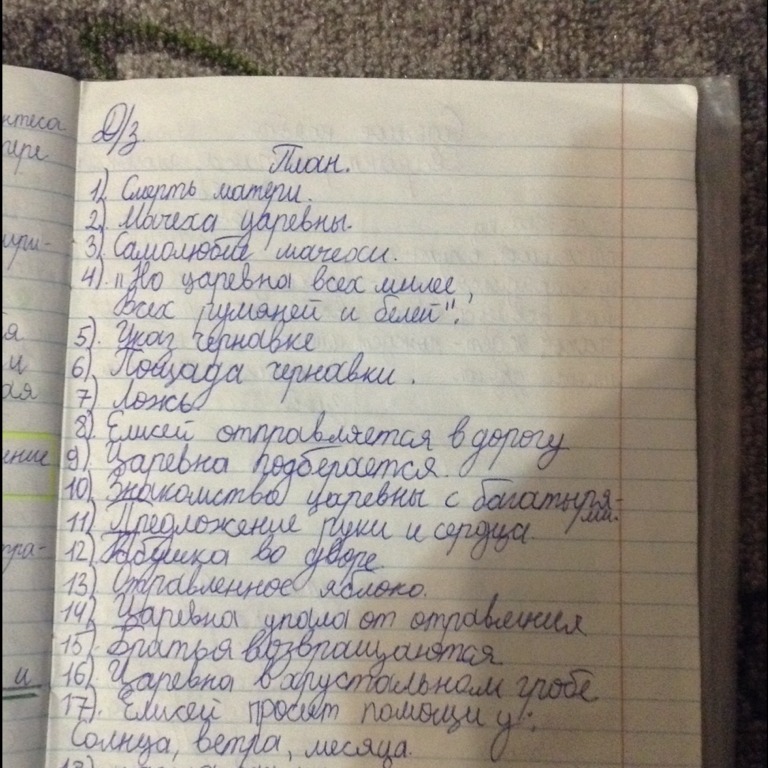 нтеса
пере
ири-
я
и
ая
ение
тра-
и
Д/з.
План.
1). Смерть матери.
2). Мачеха царевны.
3). Самолюбие мачехи.
4). "Но царевна всех милее,
Всех румяней и белей".
5). Указ чернавке
6). Пощада чернавки.
7). Ложь.
8). Елисей отправляется в дорогу
9). Царевна подберается.
10). Знакомство царевны с багатыря-
ми.
11). Предложение руки и сердца.
12). Бабушка во дворе
13). Отравленное яблоко.
14). Царевна упала от отравления
15). Братья возвращаются
16). Царевна в хрустальном гробе
17). Елисей просит помощи у:
Солнца, ветра, месяца.
18).